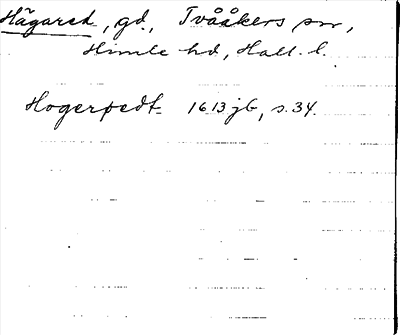 Hågared, gd., Tvååkers sn,
Himle hd, Hall. l.
Hogerpedt 1613 jb, s. 34.